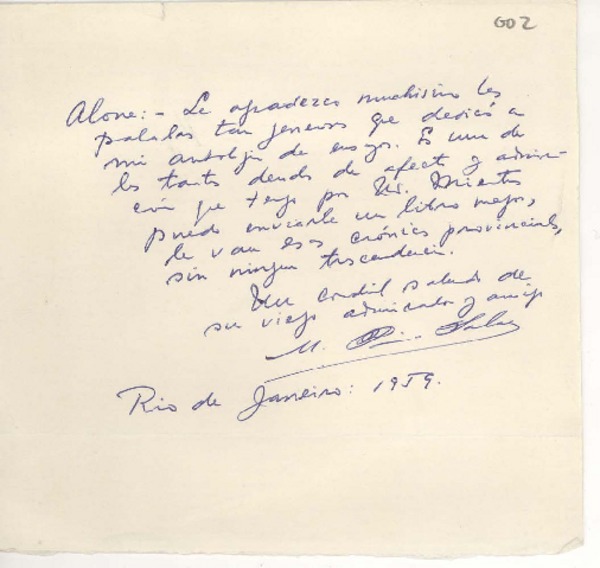 GO2
Alone: - Le agradezco muchísimo las
palabras tan generosas que dedicó a
mi antología de ensayos. Es una de
las tantas deudas de afecto y admira-
ción que tengo por Ud. Mientras
puedo enviarle un libro mejor,
le van esas crónicas provinciales,
sin ninguna trascendencia.
Un cordial saludo de
su viejo admirador y amigo
M. Picón Salas
Rio de Janeiro: 1959.